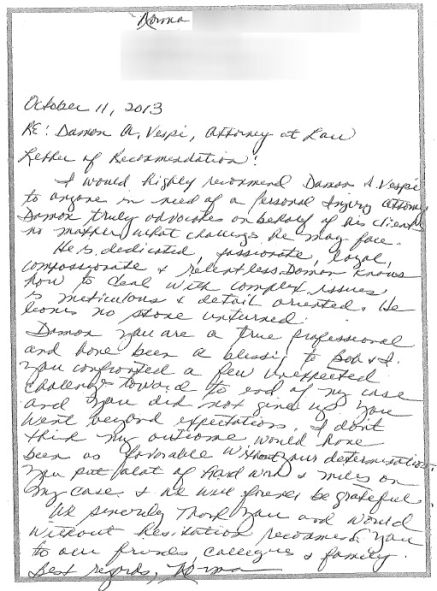 Norma
October 11, 2013
RE: Damon A. Vespi, Attorney at Law
Letter of Recommendation:
I would highly recommend Damon A. Vespi
to anyone in need of a personal Injury attorney
Damon truly advocates on behalf of his clients
no matter what challenges he may face.
He is dedicated, passionate, loyal,
compassionate & relentless. Damon knows
how to deal with complex issues
is meticulous & detail oriented. He
leaves no stone unturned.
Damon you are a true professional
and have been a blessing to Bob & I.
You confronted a few unexpected
challenges toward to end of my case
and you did not give up, you
went beyond expectations. I dont
think my outcome would have
been as favorable without your determination.
You put alot of hard work & miles on
my case & we will forever be grateful
We sincerely Thank You and would
without hesitation recommend you
to our friends, collegues & family.
Best regards, Norma